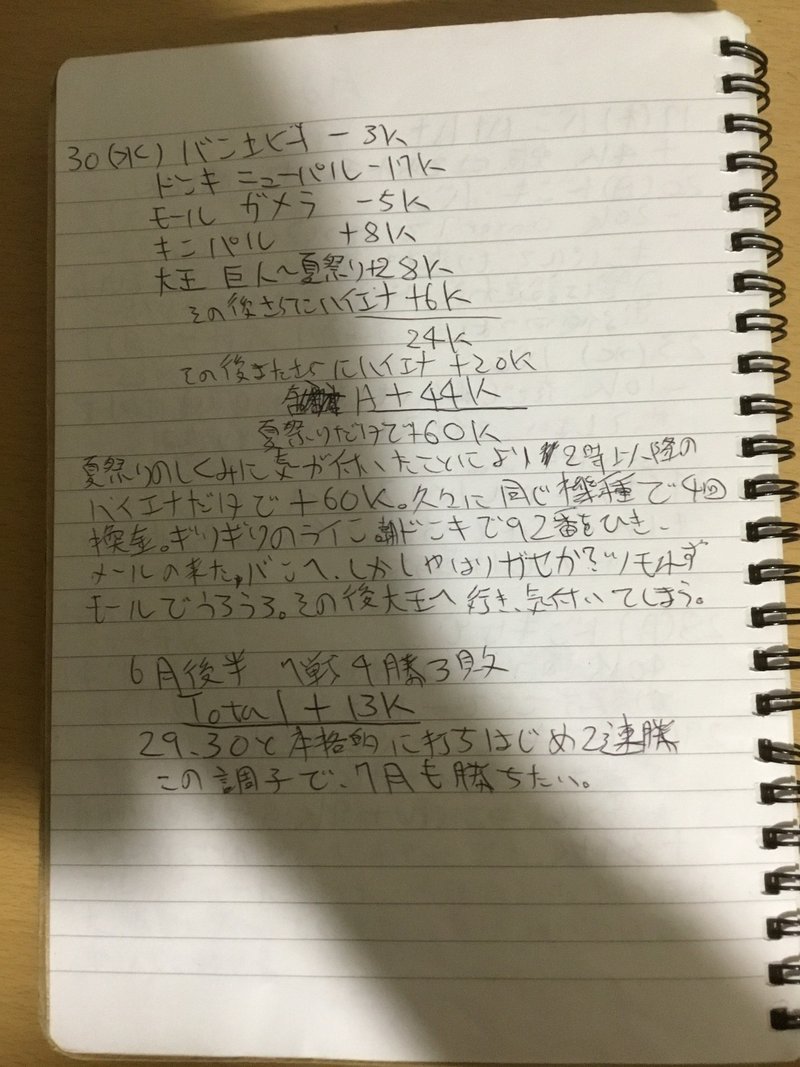 30(水) バン エビギ －3K
ドンキ ニューパル －17K
モール ガメラ －5K
キニパル ＋8K
大王 巨人～夏祭り＋28K
その後さらにハイエナ ＋6K
24K
その後またさらにハイエナ ＋20K
＋44K
夏祭りだけで＋60K
夏祭りのしくみに気が付いたことにより 12時以降の
ハイエナだけで＋60K。久々に同じ機種で4回
換金。ギリギリのライン。朝ドンキで92番をひき、
メールの来たバンへ、しかしやはりガセか?ツモれず
モールでうろうろ。その後大王へ行き、気付いてしまう。
6月後半 7戦4勝3敗
Total ＋13K
29、30と本格的に打ちはじめ2連勝
この調子で、7月も勝ちたい。